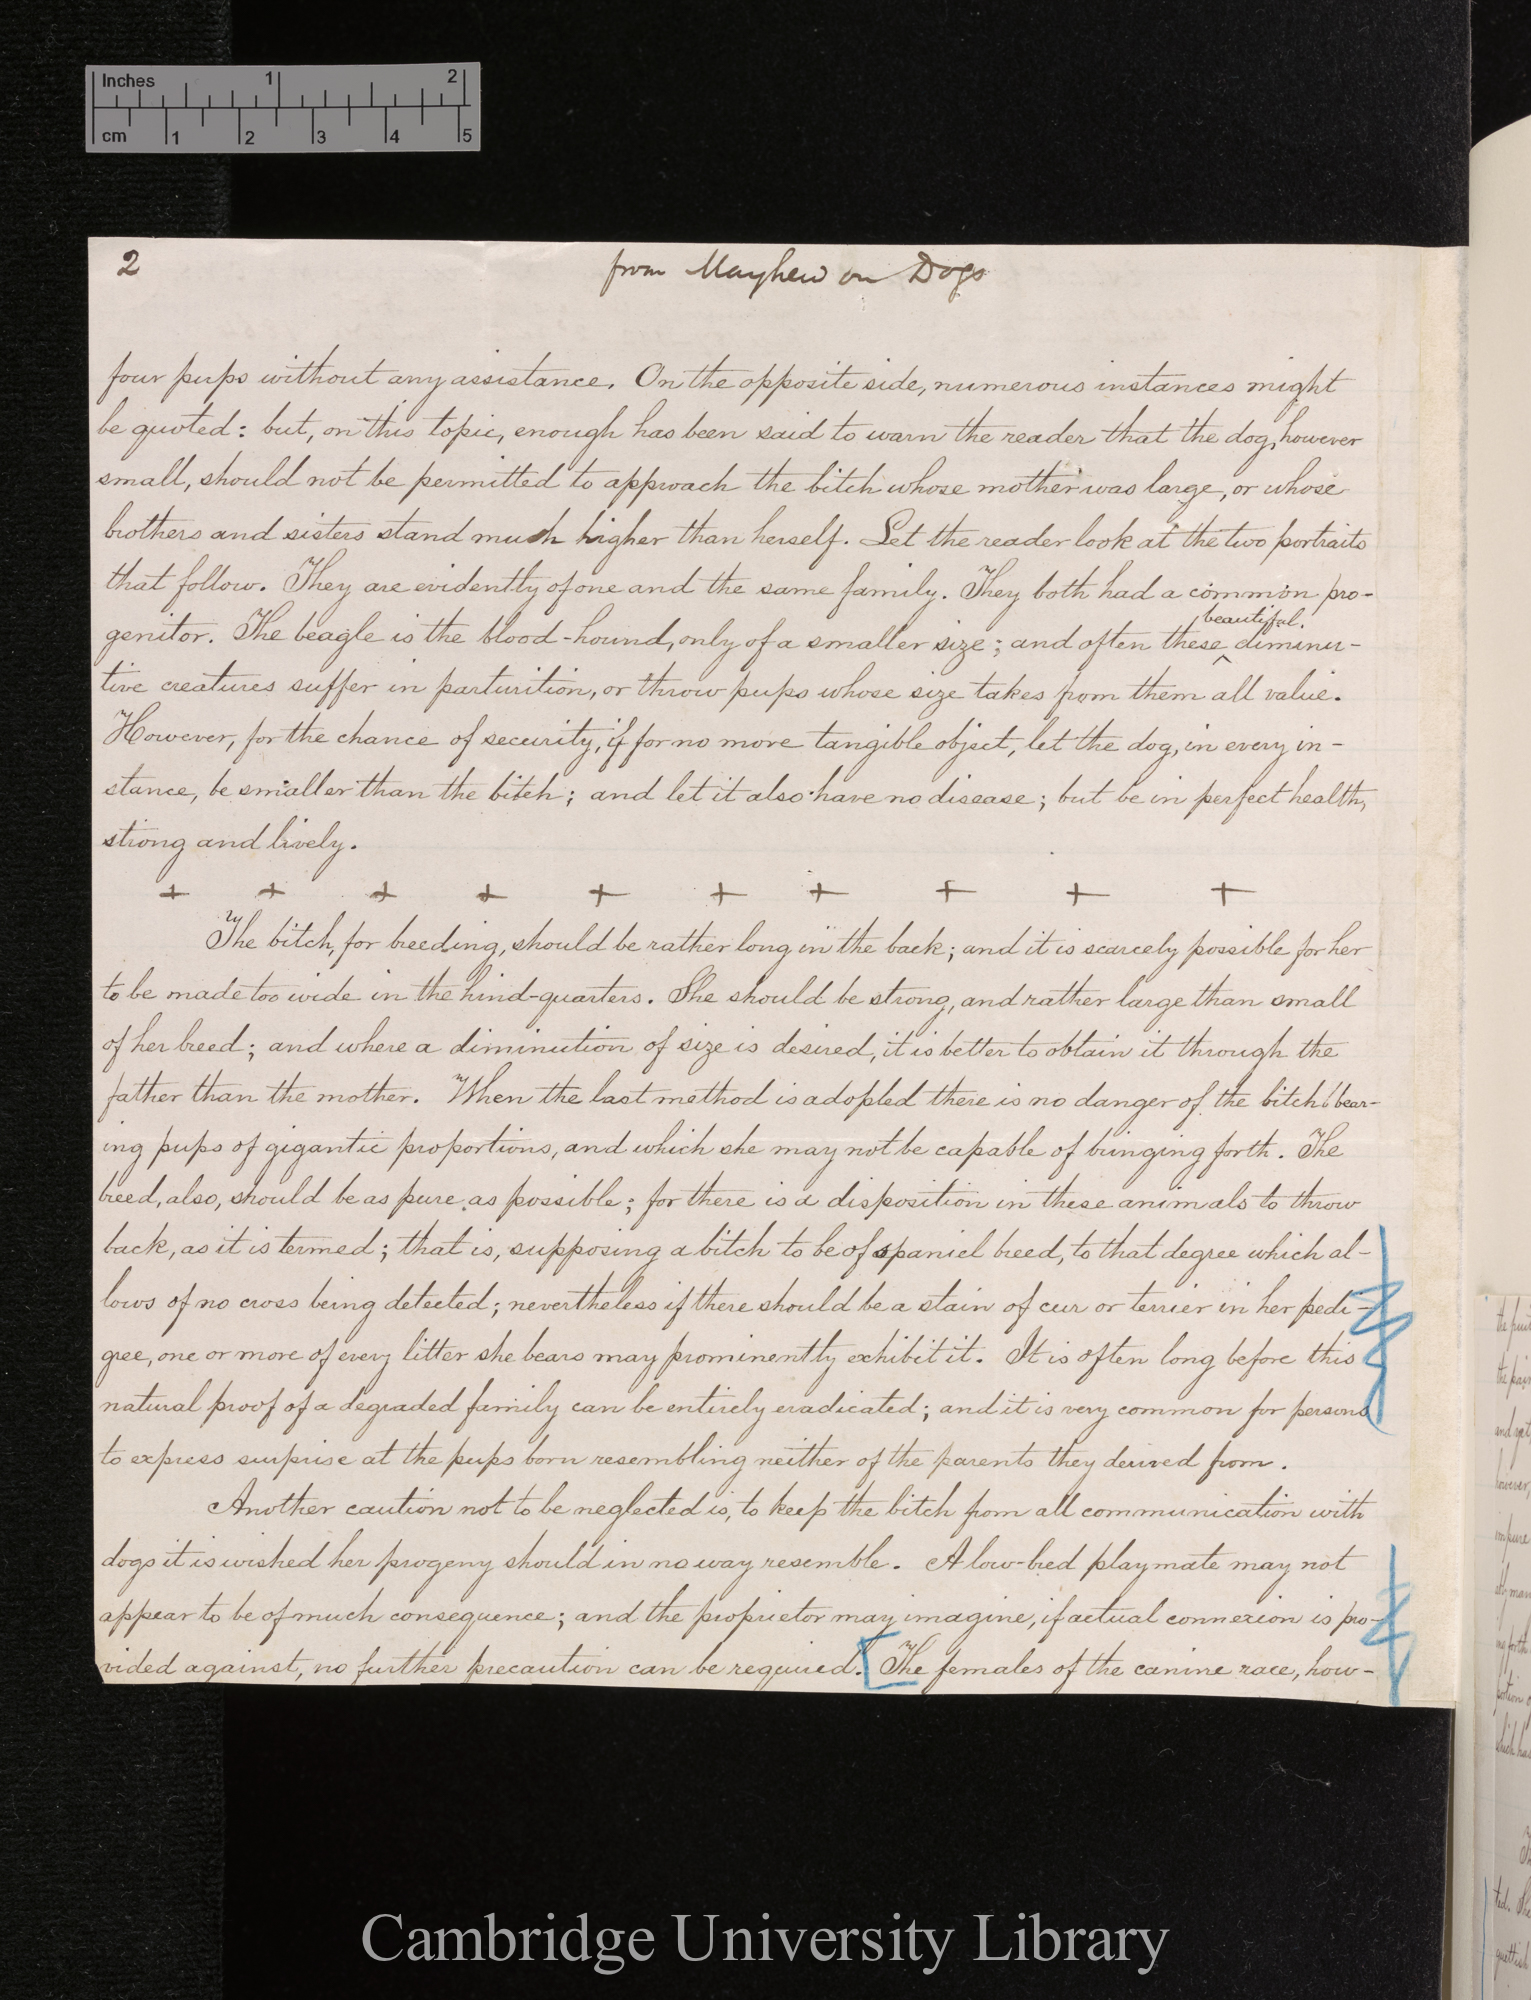 Inches 1 2
cm 1 2 3 4 5
2 from Mayhew on Dogs
four pups without any assistance. On the opposite side, numerous instances might
be quoted: but, on this topic, enough has been said to warn the reader that the dog, however
small, should not be permitted to approach the bitch whose mother was large, or whose
brothers and sisters stand much higher than herself. Let the reader look at the two portraits
that follow. They are evidently of one and the same family. They both had a common pro-
beautiful.
genitor. The beagle is the blood-hound, only of a smaller size; and often these ^ diminu-
tive creatures suffer in parturition, or throw pups whose size takes from them all value.
However, for the chance of security, if for no more tangible object, let the dog, in every in-
stance, be smaller than the bitch; and let it also have no disease; but be in perfect health,
strong and lively.
+ + + + + + + + + +
The bitch, for breeding, should be rather long in the back; and it is scarcely possible for her
to be made too wide in the hind-quarters. She should be strong, and rather large than small
of her breed; and where a diminution of size is desired, it is better to obtain it through the
father than the mother. When the last method is adopted there is no danger of the bitch bear-
ing pups of gigantic proportions, and which she may not be capable of bringing forth. The
breed, also, should be as pure as possible; for there is a disposition in these animals to throw
back, as it is termed; that is, supposing a bitch to be of spaniel breed, to that degree which al-
lows of no cross being detected; nevertheless if there should be a stain of cur or terrier in her pedi-
gree, one or more of every litter she bears may prominently exhibit it. It is often long before this
natural proof of a degraded family can be entirely eradicated; and it is very common for persons
to express surprise at the pups born resembling neither of the parents they derived from.
Another caution not to be neglected is, to keep the bitch from all communication with
dogs it is wished her progeny should in no way resemble. A low-bred playmate may not
appear to be of much consequence; and the proprietor may imagine, if actual connexion is pro-
vided against, no further precaution can be required. [The females of the canine race, how-
Cambridge University Library